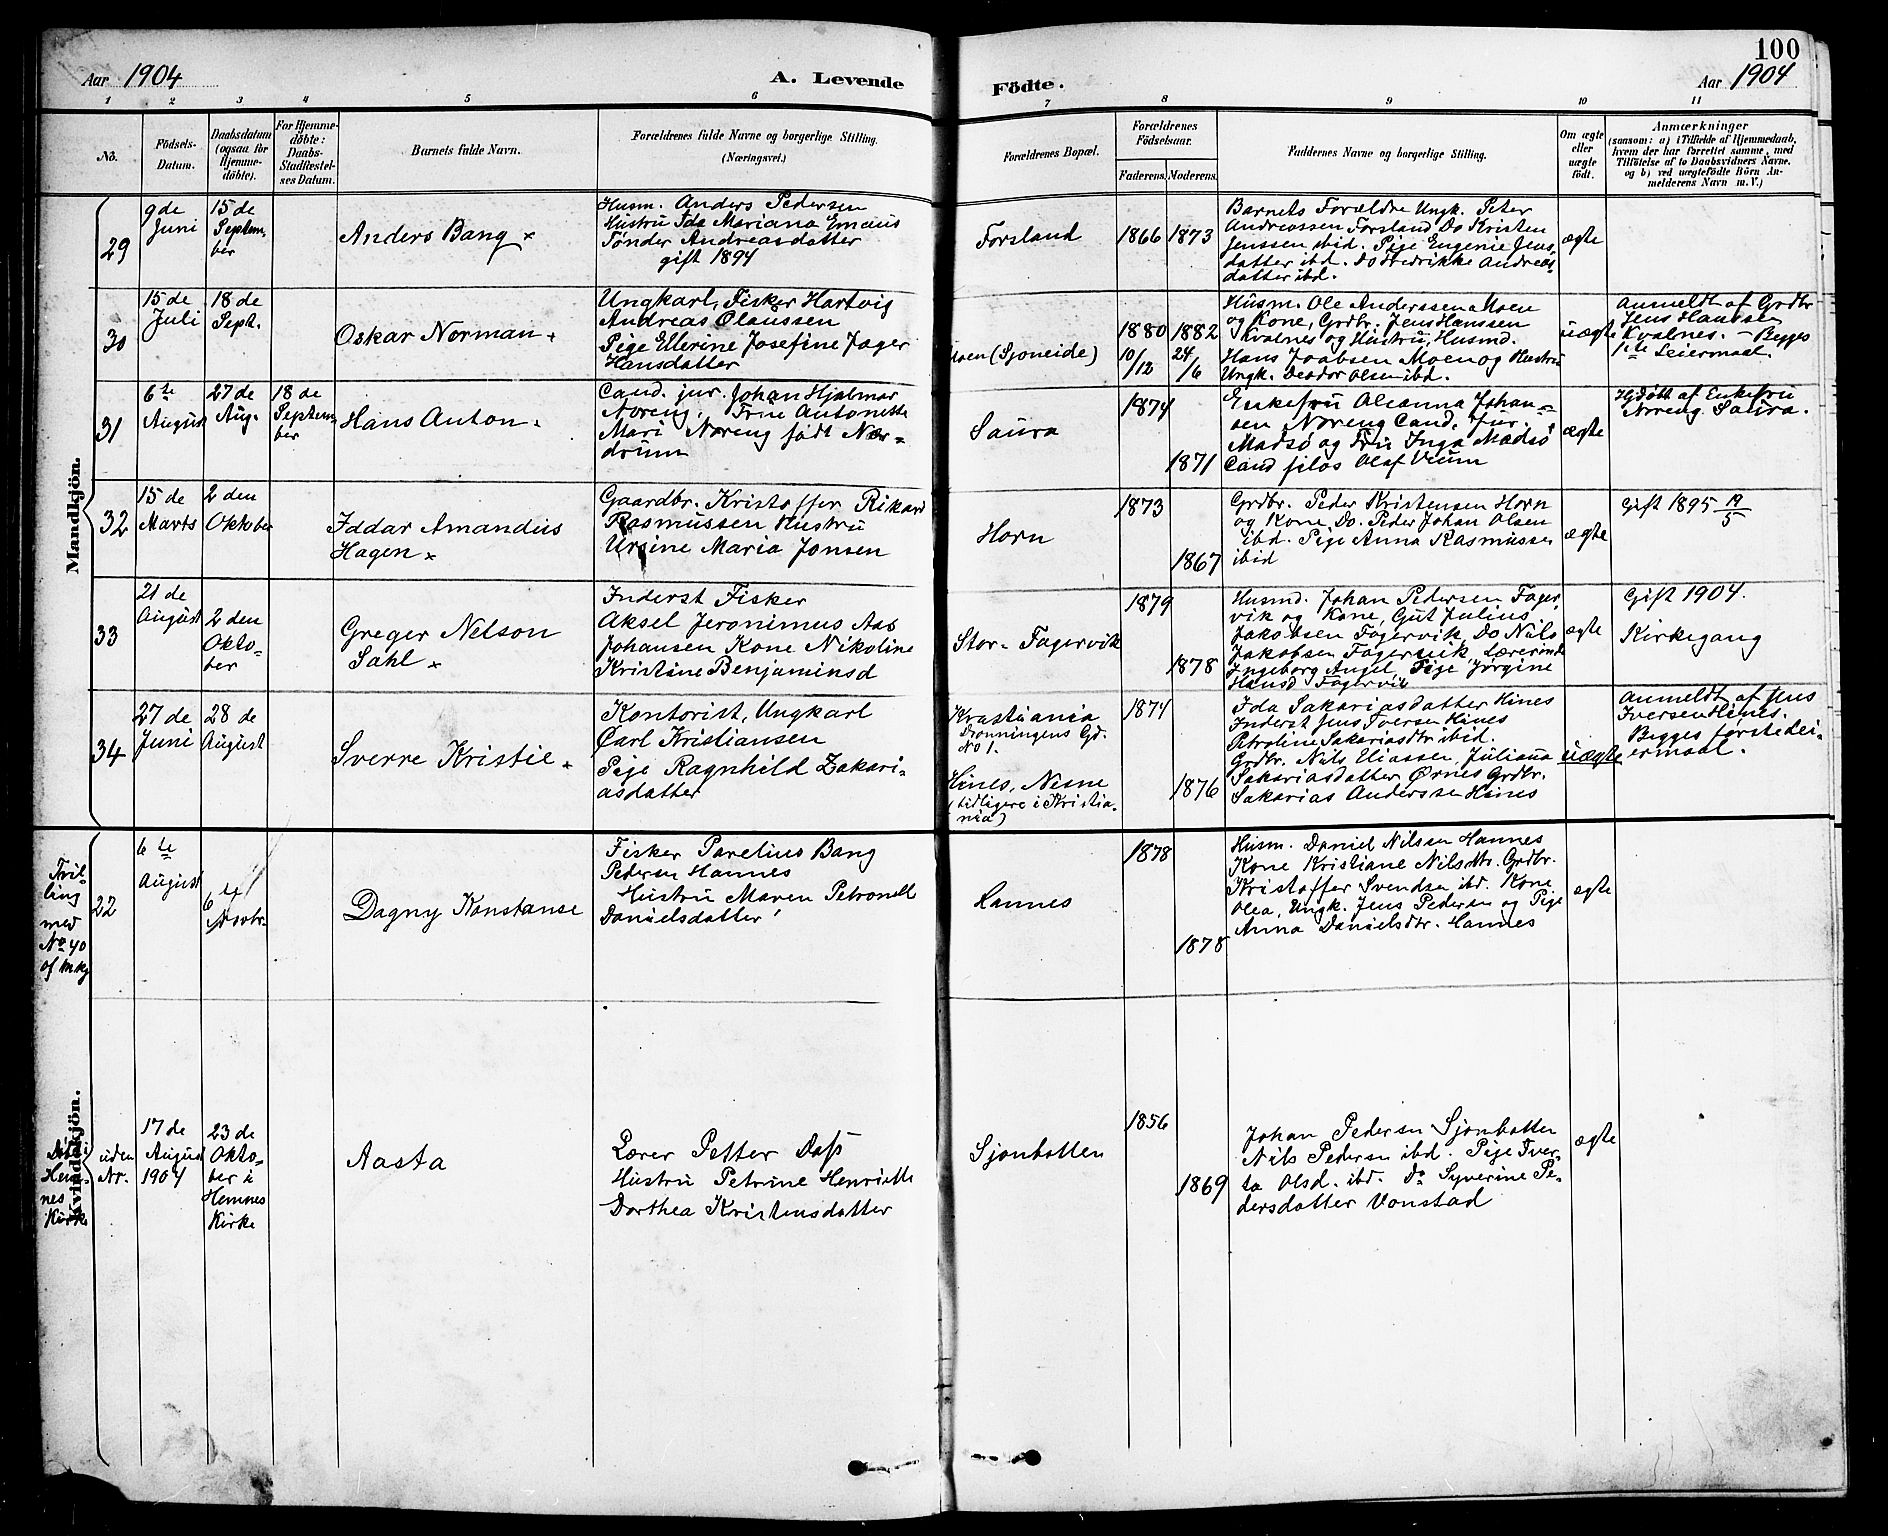 100
Aar 1904
A. Levende
Födte.
Aar 1904
1 2 3 4 5 6 7 8 9 10 11
No.
Födsels-
Datum.
Daabsdatum
(ogsaa for
Hjemme-
döbte).
For Hjemme-
döbte:
Daabs-
Stadfæstel-
ses Datum.
Barnets fulde Navn.
Forældrenes fulde Navne og borgerlige Stilling.
(Næringsvei.)
Forældrenes Bopæl.
Forældrenes
Födselsaar.
Faderens.
Moderens.
Faddernes Navne og borgerlige Stilling.
Om ægte
eller
uægte
födt.
Anmærkninger
(saasom: a) i Tilfælde af Hjemmedaab,
hvem der har forrettet samme, med
Tilföielse af to Daabsvidners Navne.
og b) ved uægtefödte Börn An-
melderens Navn m. V.)
Mandkjön.
29
9de
Juni
15 de
Septem-
ber
Anders Bang
Husm. Anders Pedersen
Hustru Ida Mariana Emaus
Tönder Andreasdatter
gift 1894
Forsland
1866
1873
Barnets Forældre Ungk. Peter
Andreassen Forsland Do Kristen
Jenssen ibid. Pige Eugenie Jens
datter ibd. Do Fredrikke Andreas
datter ibd.
ægte
30
15 de
Juli
18 de
Sept.
Oskar Norman
Ungkarl, Fisker Hartvig
Andreas Olaussen
Pige Ellerine Josefine Jager
Hansdatter
Moen (Sjoneide)
1880
10/12
1882
24/6
Husm. Ole Anderssen Moen
og Kone, Grdbr. Jens Hanssen
Kvalnes og Hustru, Husmd.
Hans Jaabsen Moen og Hustru
Ungk. Deodor Olsen ibd.
uægte
Anmeldt af Grdbr
Jens Hanssen
Kvalnes. - Begges
1ste Leiermaal.
31
6te
August
27 de
Aug.
18 de
Septem-
ber
Hans Anton
Cand. jur. Johan Hjalmar
Noreng, Frue Antonette
Mari Noreng födt Nær-
drum
Saura
1874
1871
Enkefru Oleanna Johan-
sen Noreng Cand. jur.
Madsø og Fru Inga Madsø
Cand filos Olaf Veum
ægte
Hjdøbt af Enkefru
Noreng Saura.
32
15 de
Marts
2 den
Oktober
Iddar Amandus
Hagen
Gaardbr. Kristoffer Rikard
Rasmussen Hustru
Ursine Maria Jonsen
Horn
1873
1867
Grdbr. Peder Kristensen Horn
og Kone, Do. Peder Johan Olsen
ibd. Pige Anna Rasmussen
ibid
ægte
Gift 1895 19/5
33
21 de
August
2 den
Okto-
ber
Greger Nelson
Sahl
Inderst Fisker
Aksel Jeronimus Aas
Johansen Kone Nikoline
Kristine Benjaminsd
Stor-Fagervik
1879
1878
Husmd. Johan Pedersen Fager
vik og Kone, Gut Julius
Jakobsen Fagervik Do Nils
Jakobsen Fagervik Lærerinde
Ingeborg Angel, Pige Jørgine
Hansd Fagervik
ægte
Gift 1904.
Kirkegang
34
27 de
Juni
28 de
August
Sverre Kristie
Kontorist, Ungkarl
Carl Kristiansen
Pige Ragnhild Zakari-
asdatter
Kristiania
Dronningens Gd.
No 1.
Hines, Nesne
(tidligere i Kristia-
nia)
1874
1876
Ida Sakariasdatter Hines
Inderst Jens Iversen Hines
Petroline Sakariasdtr ibid.
Grdbr. Nils Eliassen, Juliana
Sakariasdatter Ørnes Grdbr.
Sakarias Anderssen Hines
uægte
Anmeldt af Jens
Iversen Hines.
Begges første Lei-
ermaal.
Kvindekjön.
Tvil-
ling
med
No 40
af Mkj
22
6 te
August
6te
Novbr.
Dagny Konstanse
Fisker Parelius Bang
Pedersen Hannes
Hustru Maren Petronell
Danielsdatter
Hannes
1878
1878
Husm. Daniel Nilsen Hannes
Kone Kristiane Nilsdtr. Grdbr.
Kristoffer Svendsen ibd. Kone
Olea, Ungk. Jens Pedersen og Pige
Anna Danielsdtr. Hannes
ægte
Döbt i
Hem-
nes
Kirke
uden
Nr.
17 de
August
1904
23 de
Okto-
ber i
Hemnes
Kirke
Aasta
Lærer Petter Dass
Hustru Petrine Henriette
Dorthea Kristensdatter
Sjonbotten
1856
1869
Johan Pedersen Sjonbotten
Nils Pedersen ibd. Pige Iver-
ta Olsd. ibd. Do Syverine Pe-
dersdatter Vonstad
ægte